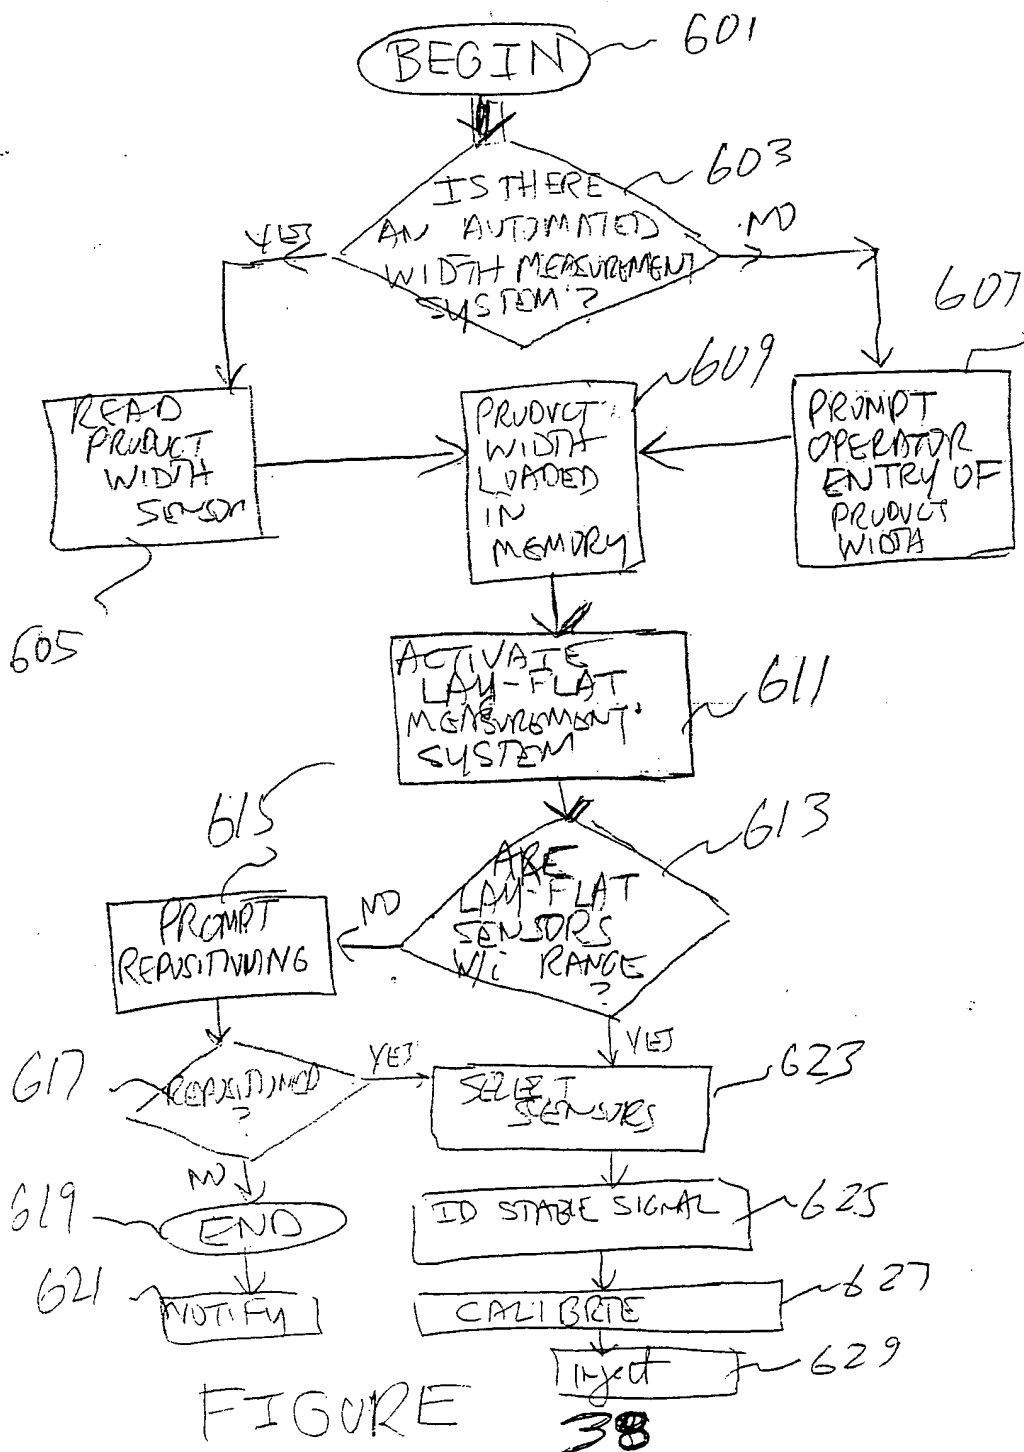 BEGIN
601
IS THERE
AN AUTOMATED
WIDTH MEASUREMENT
SYSTEM?
603
YES
NO
607
READ
PRODUCT
WIDTH
SENSOR
605
PRODUCT
WIDTH
LOADED
IN
MEMORY
609
PROMPT
OPERATOR
ENTRY OF
PRODUCT
WIDTH
ACTIVATE
LAY-FLAT
MEASUREMENT
SYSTEM
611
615
ARE
LAY-FLAT
SENSORS
W/i RANGE
?
613
NO
PROMPT
REPOSITIONING
YES
617
REPOSITIONED
?
YES
SELECT
SENSORS
623
NO
619
END
ID STABLE SIGNAL
625
621
NOTIFY
CALIBRTE
627
Inject
629
FIGURE 38